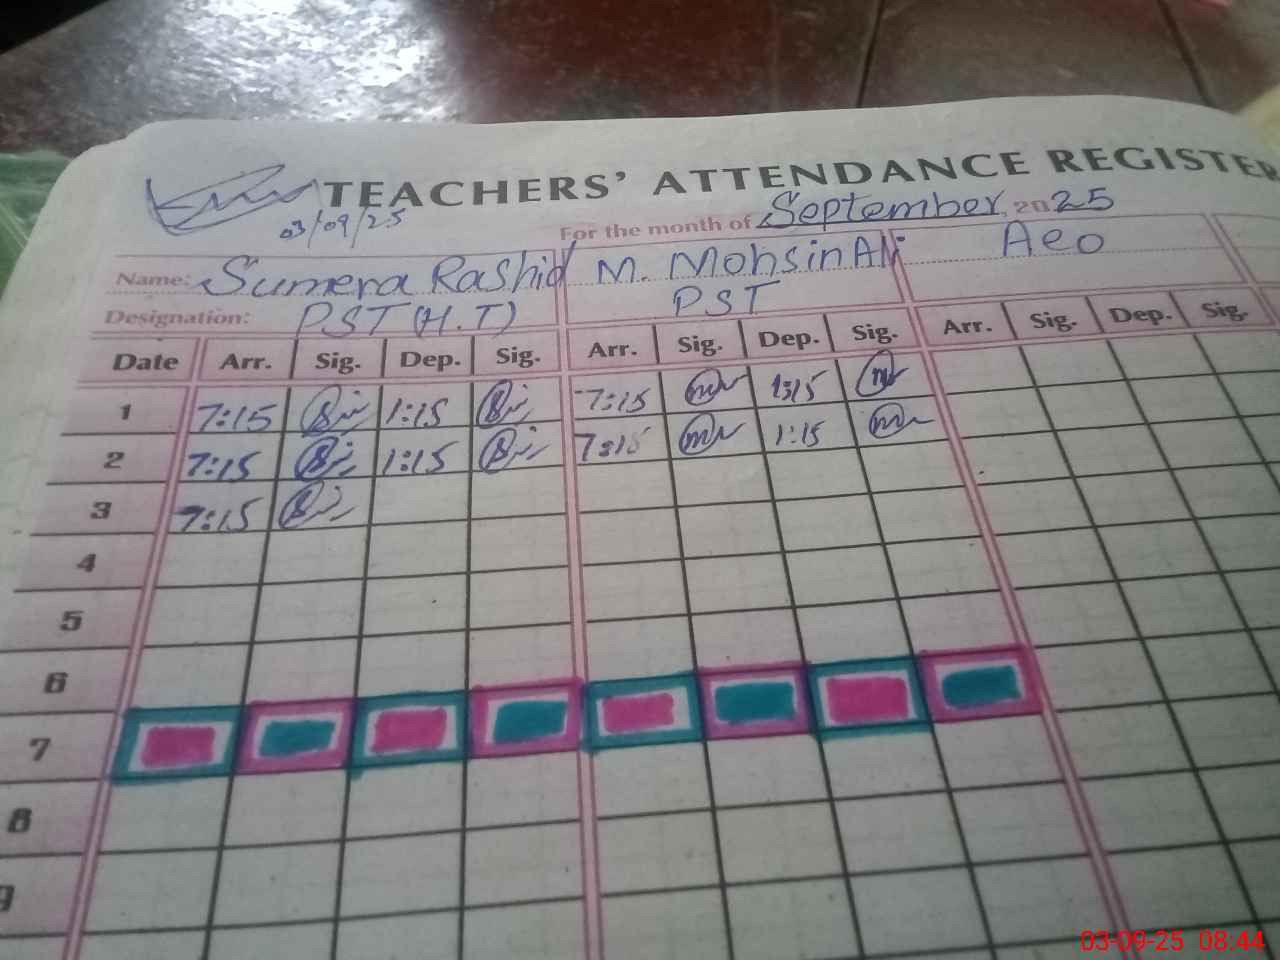 TEACHERS' ATTENDANCE REGISTER
03/09/25
For the month of September, 2025
Name: Sumera Rashid M. Mohsin Ali Aeo
Designation: PST (H.T) PST
Date Arr. Sig. Dep. Sig. Arr. Sig. Dep. Sig. Arr. Sig. Dep. Sig.
1 7:15 1:15 7:15 1:15
2 7:15 1:15 7:15 1:15
3 7:15
4
5
6
7
8
9
03-09-25 08:44